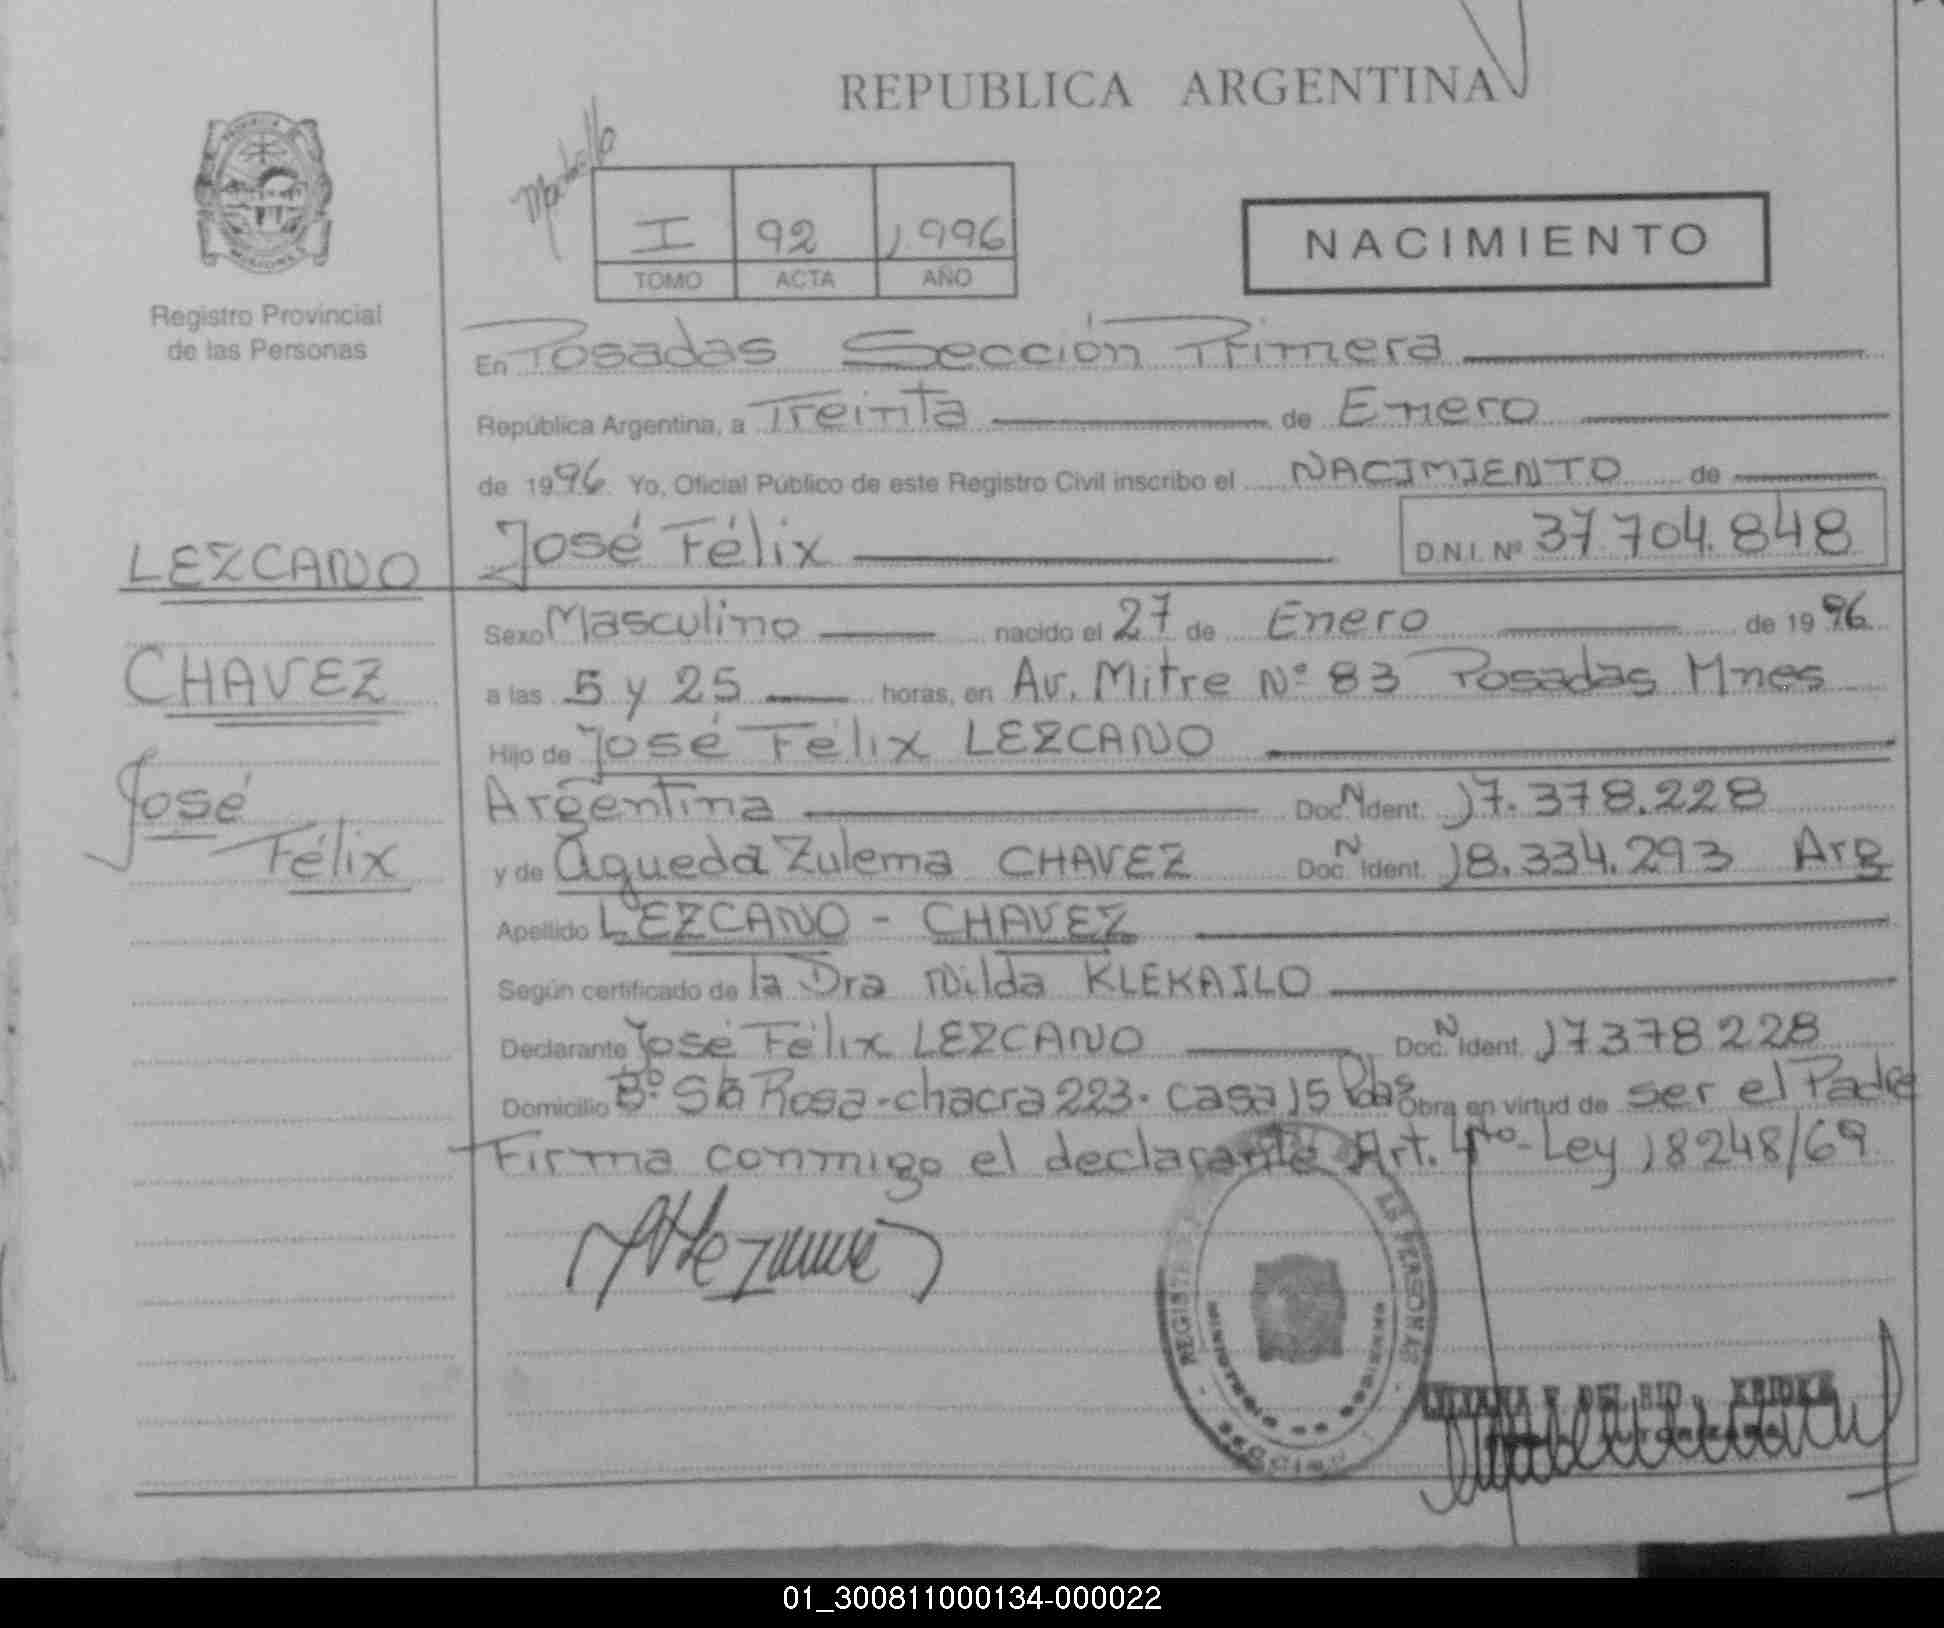 REPUBLICA ARGENTINA
I 92 1996
TOMO ACTA AÑO
NACIMIENTO
Registro Provincial
de las Personas
En Posadas Sección Primera
República Argentina, a Treinta de Enero
de 1996 Yo, Oficial Público de este Registro Civil inscribo el NACIMIENTO de
LEZCANO
José Félix D.N.I. Nº 37.704.848
Sexo Masculino nacido el 27 de Enero de 1996
CHAVEZ
a las 5 y 25 horas, en Av. Mitre Nº 83 Posadas Mnes
Hijo de José Félix LEZCANO
José
Argentina Doc. N Ident. 17.378.228
Félix
y de Agueda Zulema CHAVEZ Doc. N Ident. 18.334.293 Arg
Apellido LEZCANO - CHAVEZ
Según certificado de la Dra Nilda KLEKAILO
Declarante José Félix LEZCANO Doc. N Ident. 17378228
Domicilio Bº Sta Rosa-chacra 223. casa 15 Pdas Obra en virtud de ser el Padre
Firma conmigo el declarante Art. 4to-Ley 18248/69
REGISTR LAS PERSONAS
SECCION 1
DEL RIO
01_300811000134-000022